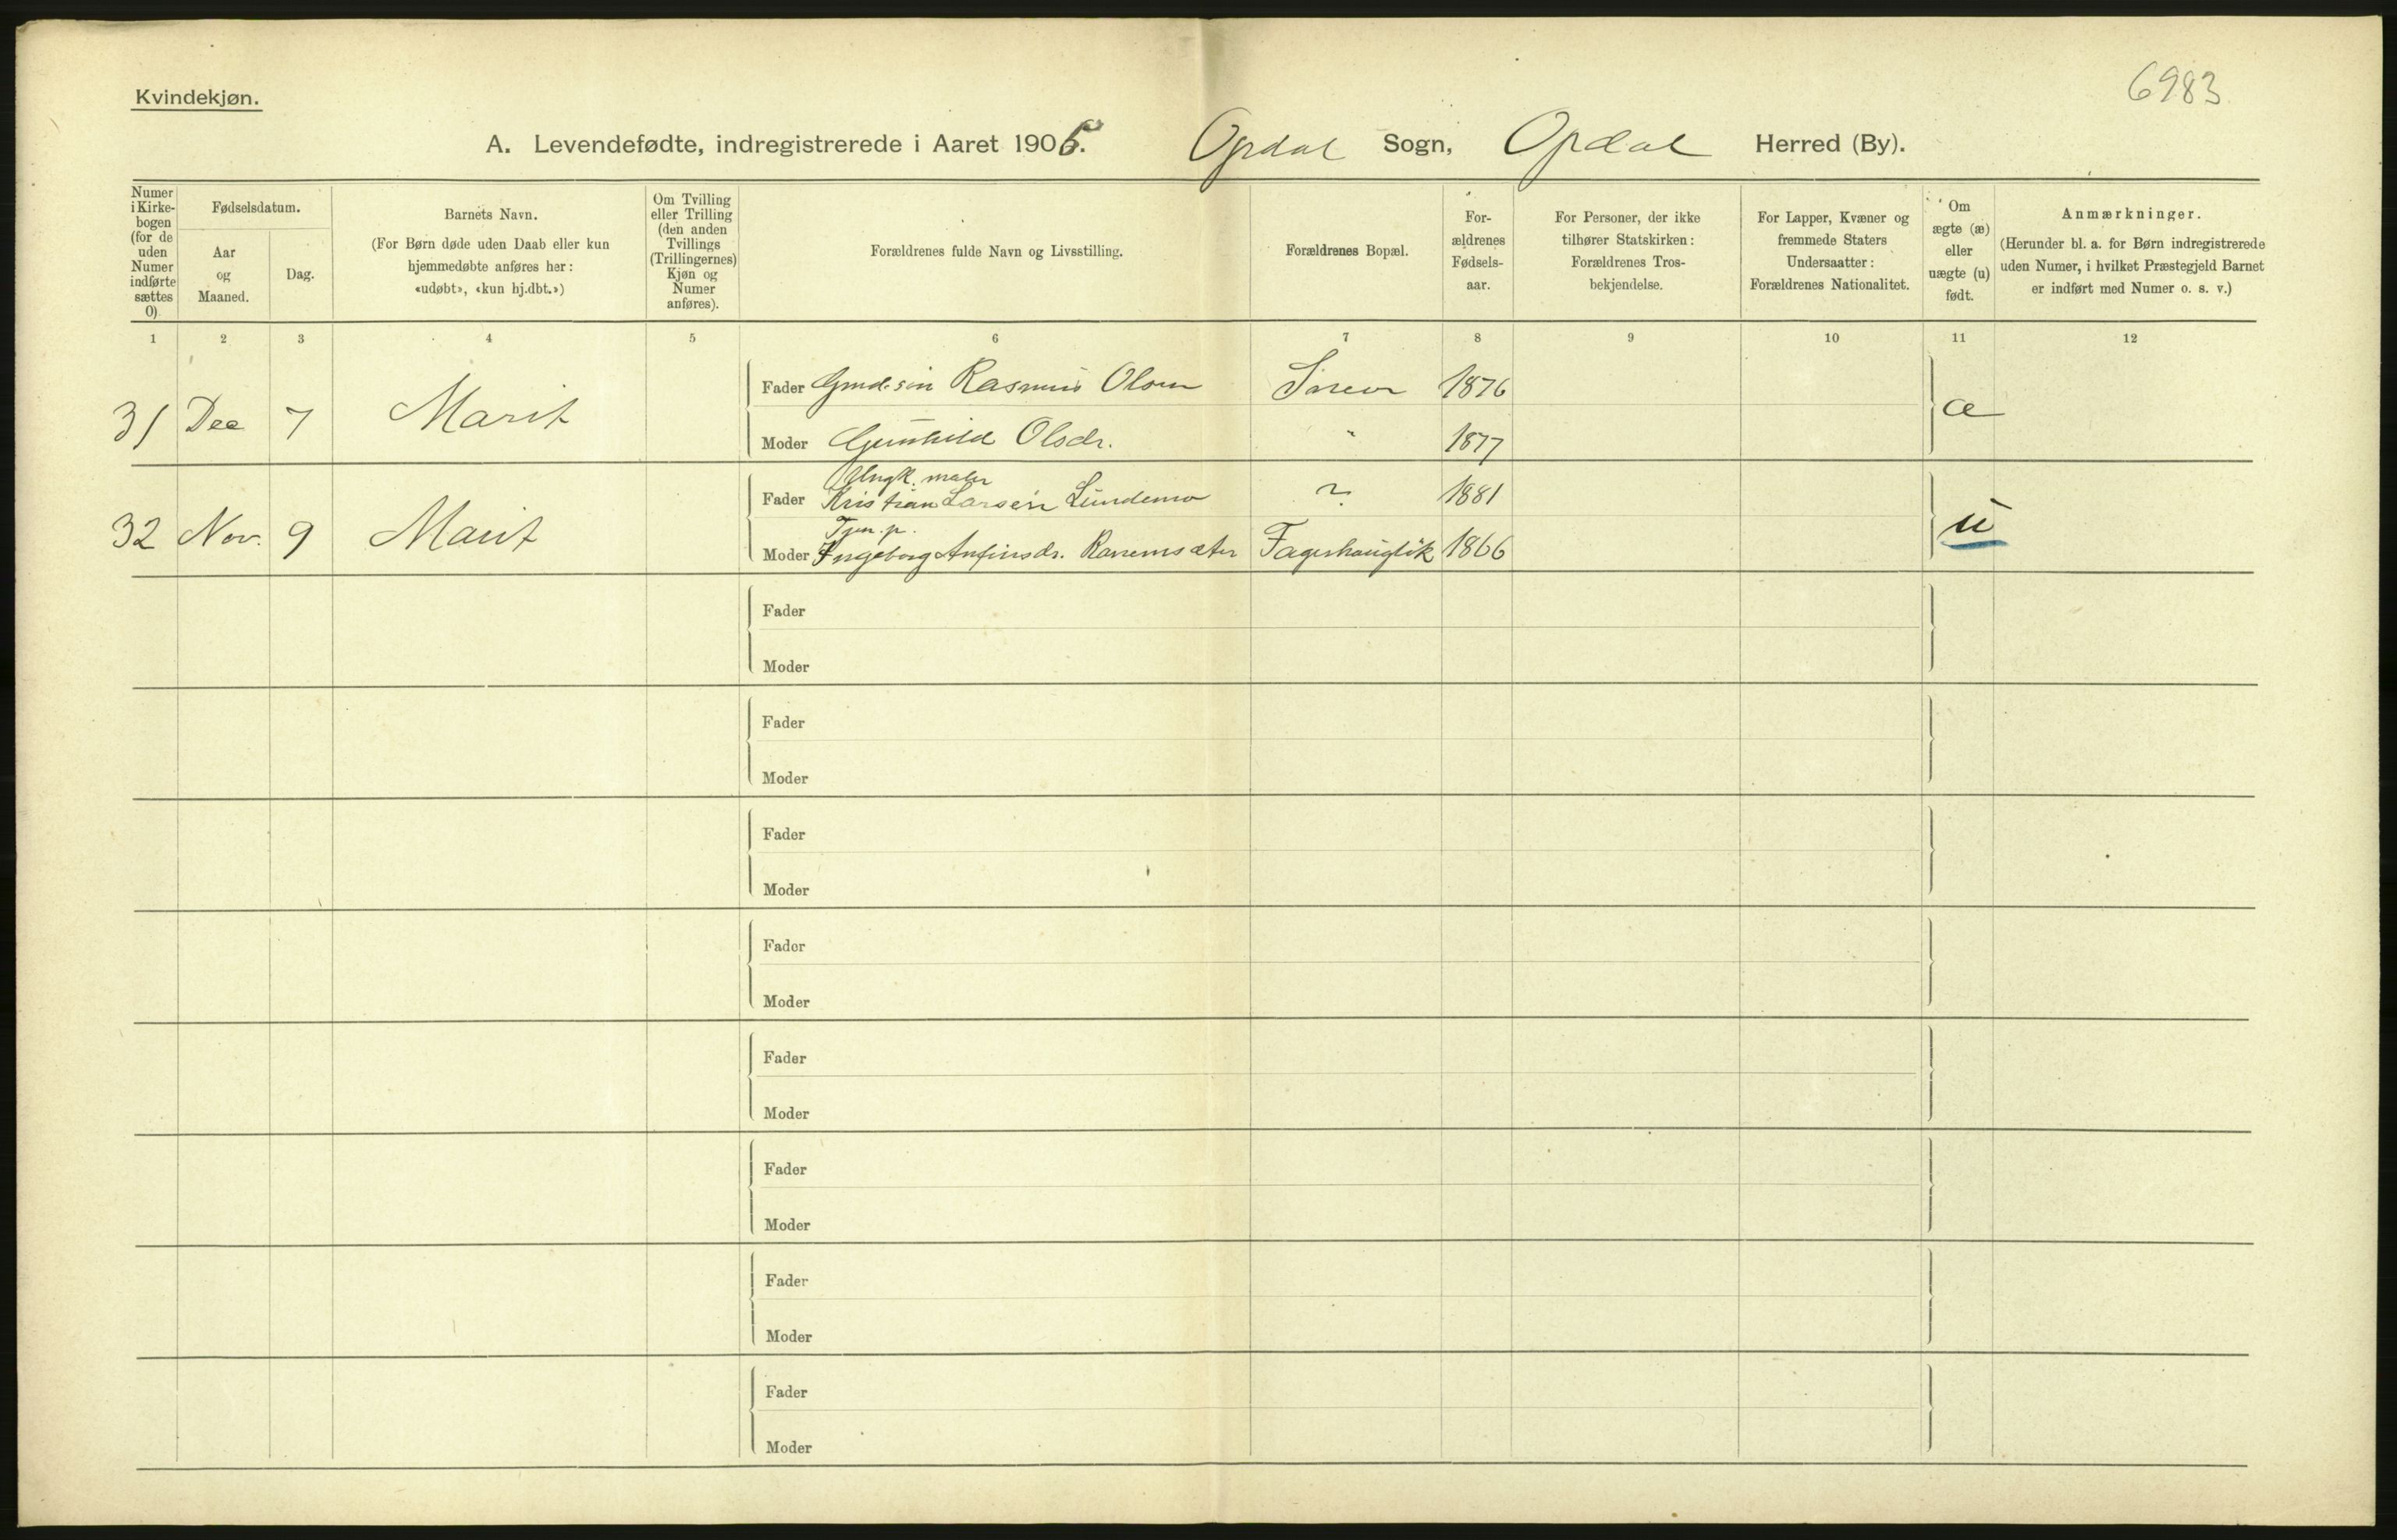 6983
Kvindekjøn.
A. Levendefødte, indregistrerede i Aaret 1905. Opdal Sogn, Opdal Herred (By).
Numer i Kirkebogen (for de uden Numer indførte sættes 0)
Fødselsdatum.
Aar og Maaned.
Dag.
Barnets Navn.
(For Børn døde uden Daab eller kun hjemmedøbte anføres her: «udøbt», «kun hj.dbt.»)
Om Tvilling eller Trilling (den anden Tvillings (Trillingernes) Kjøn og Numer anføres).
Forældrenes fulde Navn og Livsstilling.
Forældrenes Bopæl.
Forældrenes Fødselsaar.
For Personer, der ikke tilhører Statskirken: Forældrenes Trosbekjendelse.
For Lapper, Kvæner og fremmede Staters Undersaatter: Forældrenes Nationalitet.
Om ægte (æ) eller uægte (u) født.
Anmærkninger.
(Herunder bl. a. for Børn indregistrerede uden Numer, i hvilket Præstegjeld Barnet er indført med Numer o. s. v.)
1 2 3 4 5 6 7 8 9 10 11 12
31 Dec 7 Marit
Fader Gmd.søn Rasmus Olsen 1876
æ
Moder Gunhild Olsdr. " 1877
32 Nov. 9 Marit
Ungk. maler
Fader Kristian Larsen Lundemo ? 1881
u
Tjen.p.
Moder Ingeborg Anfinsdr. Ranemsæter Fagerhaugløk 1866
Fader
Moder
Fader
Moder
Fader
Moder
Fader
Moder
Fader
Moder
Fader
Moder
Fader
Moder
Fader
Moder